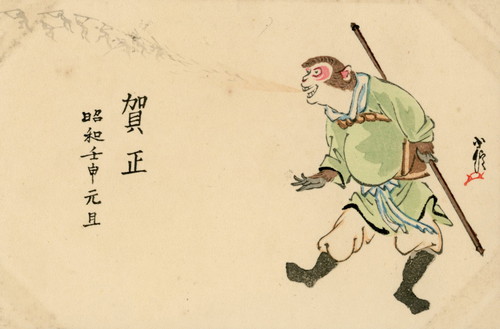 賀正
昭和壬申元旦